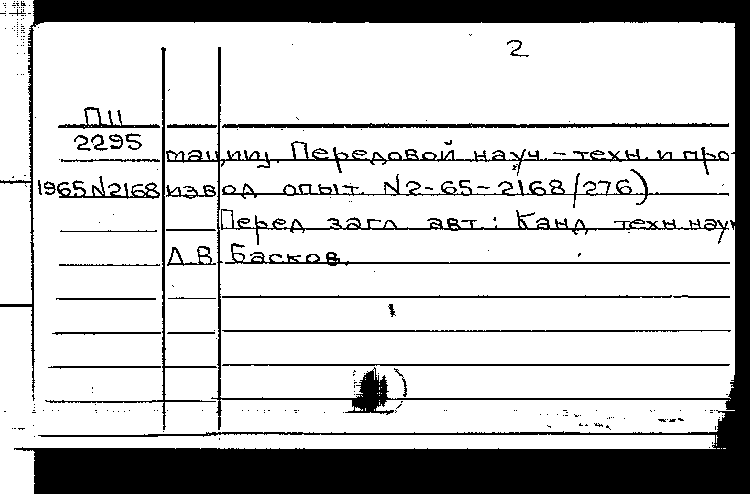 2
П11
2295
мации. Передовой науч.-техн. и про-
1965 N2168 извод. опыт. N2-65-2168/276)
Перед загл. авт.: Канд. техн. наук
Л.В. Басков.